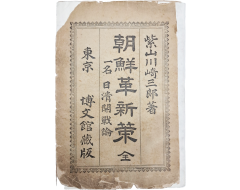 紫山川崎三郎著
朝鮮革新策 全
一名日清開戦論
東京 博文館蔵版